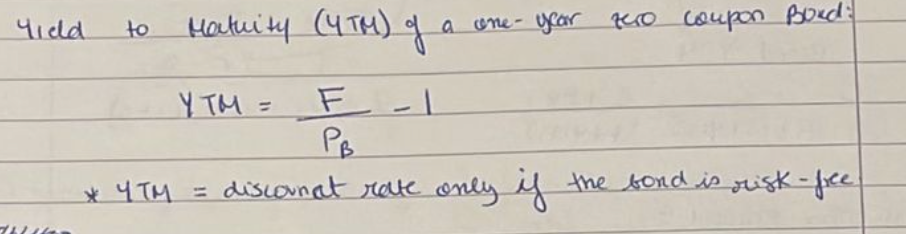 Yield to Maturity (YTM) of a one-year zero coupon Bond:
YTM = F / P_B - 1
* YTM = discounat rate only if the bond is risk-free